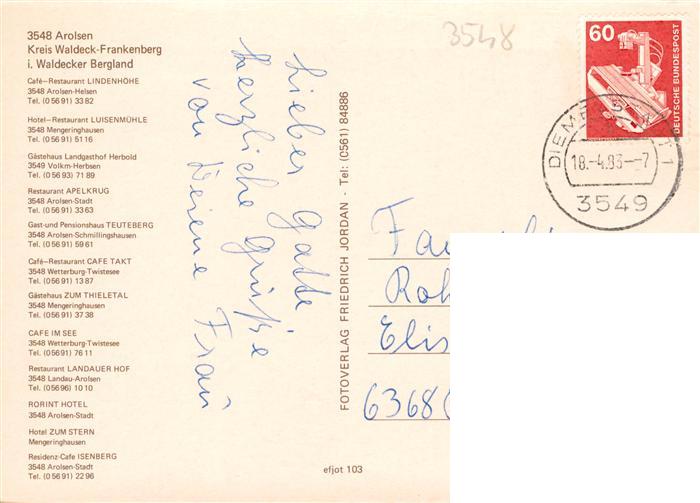 3548 Arolsen
Kreis Waldeck-Frankenberg
i. Waldecker Bergland
Café–Restaurant LINDENHÖHE
3548 Arolsen-Helsen
Tel. (0 56 91) 33 82
Hotel–Restaurant LUISENMÜHLE
3548 Mengeringhausen
Tel. (0 56 91) 51 16
Gästehaus Landgasthof Herbold
3549 Volkm-Herbsen
Tel. (0 56 93) 71 89
Restaurant APELKRUG
3548 Arolsen-Stadt
Tel. (0 56 91) 33 63
Gast-und Pensionshaus TEUTEBERG
3548 Arolsen-Schmillingshausen
Tel. (0 56 91) 59 61
Restaurant CAFE TAKT
3548 Wetterburg-Twistesee
Tel. (0 56 91) 13 87
Gästehaus ZUM THIELETAL
3548 Mengeringhausen
Tel. (0 56 91) 37 38
CAFE IM SEE
3548 Wetterburg-Twistesee
Tel. (0 56 91) 76 11
Restaurant LANDAUER HOF
3548 Landau-Arolsen
Tel. (0 56 96) 10 10
RORINT HOTEL
3548 Arolsen-Stadt
Hotel ZUM STERN
Mengeringhausen
Residenz-Cafe ISENBERG
3548 Arolsen-Stadt
Tel. (0 56 91) 22 96
Lieber Gatte
herzliche Grüße
von Deiner Frau
FOTOVERLAG FRIEDRICH JORDAN - Tel: (0561) 84886
efjot 103
3548
60
DEUTSCHE BUNDESPOST
18.-4.83--7
3549
Elis
6368